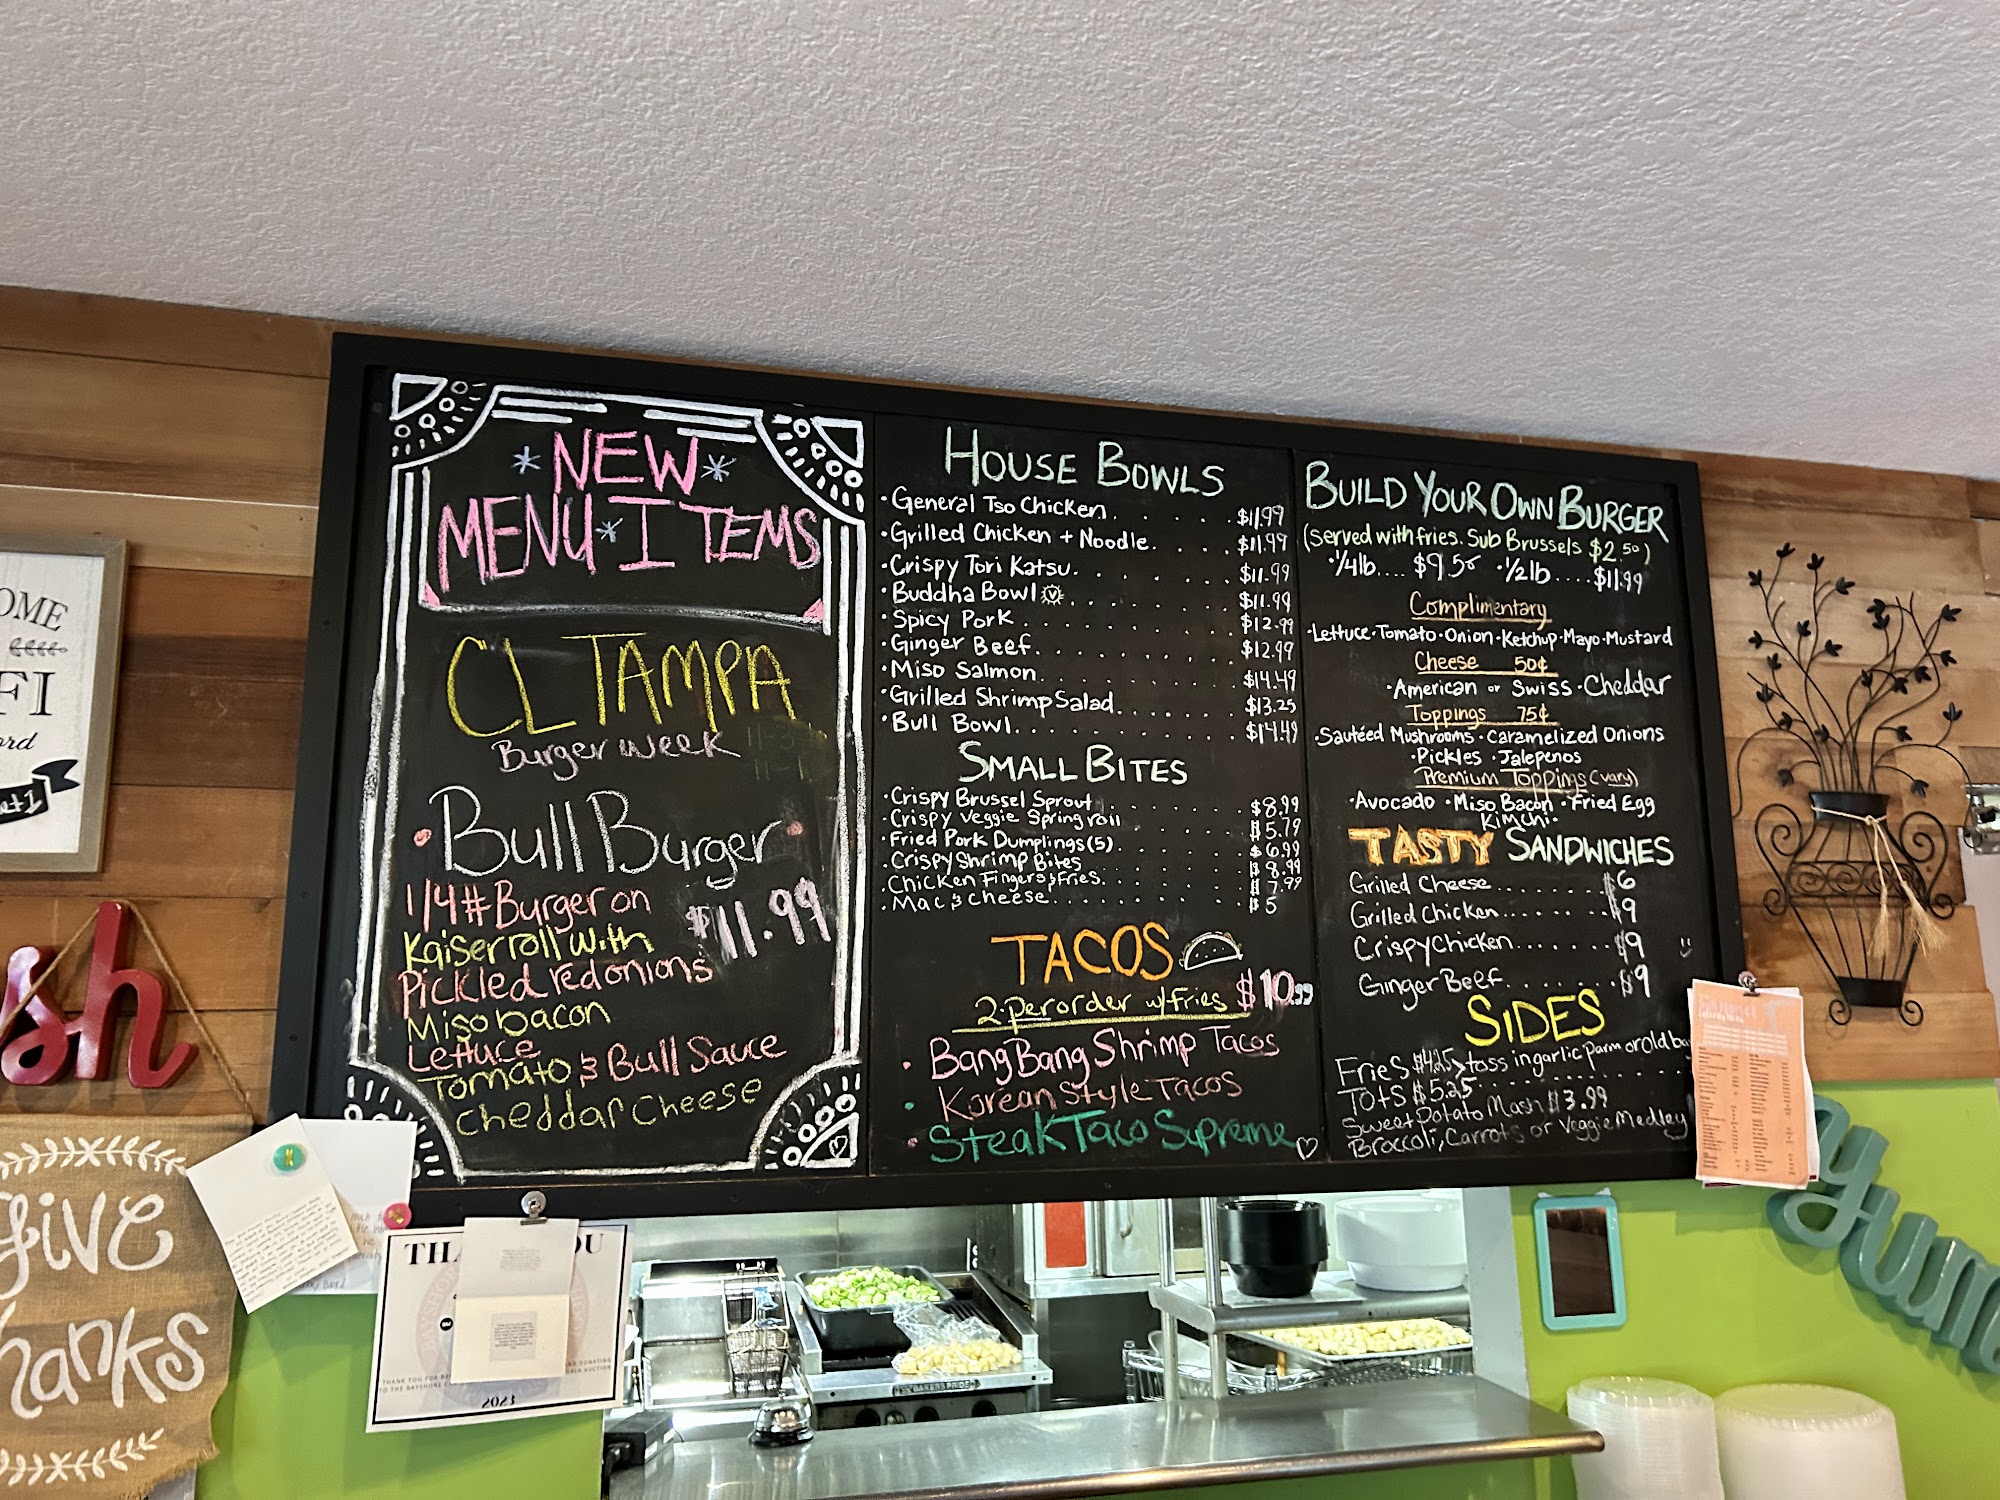 *NEW*
MENU*ITEMS
CL TAMPA
Burger week
• Bull Burger •
1/4# Burger on
Kaiser roll with
$11.99
Pickled red onions
Miso bacon
Lettuce
Tomato & Bull Sauce
Cheddar Cheese
HOUSE BOWLS
• General Tso Chicken . . . . . . $11.99
• Grilled Chicken + Noodle. . . . . $11.99
• Crispy Tori Katsu. . . . . . . $11.99
• Buddha Bowl V . . . . . . . $11.99
• Spicy Pork . . . . . . . . $12.99
• Ginger Beef. . . . . . . . $12.99
• Miso Salmon . . . . . . . . $14.49
• Grilled Shrimp Salad. . . . . . $13.25
• Bull Bowl. . . . . . . . . $14.49
SMALL BITES
• Crispy Brussel Sprout . . . . . . $8.99
• Crispy Veggie Springroll . . . . . $5.79
• Fried Pork Dumplings (5) . . . . . $6.99
• Crispy Shrimp Bites . . . . . . $8.99
• Chicken Fingers & Fries. . . . . . $7.99
• Mac & Cheese. . . . . . . . $5
TACOS
2 per order w/ fries $10.99
• Bang Bang Shrimp Tacos
• Korean Style Tacos
• Steak Taco Supreme
BUILD YOUR OWN BURGER
(Served with fries. Sub Brussels $2.50)
• 1/4lb.... $9.50 • 1/2lb .... $11.99
Complimentary
• Lettuce • Tomato • Onion • Ketchup • Mayo • Mustard
Cheese 50¢
• American or Swiss • Cheddar
Toppings 75¢
• Sautéed Mushrooms • Caramelized Onions
• Pickles • Jalepenos
Premium Toppings (vary)
• Avocado • Miso Bacon • Fried Egg
Kimchi •
TASTY SANDWICHES
Grilled Cheese....... $6
Grilled Chicken....... $9
Crispy Chicken...... $9
Ginger Beef....... $9
SIDES
Fries $4.25 > toss in garlic parm or old
Tots $5.25
Sweet Potato Mash $3.99
Broccoli, Carrots or Veggie Medley
OME
FI
sh
Give
hanks
THA
OU
THANK YOU FOR
AND DONATING
TO THE BAYSHORE
GALA AUCTION
2023
BAKERS PRIDE
yum